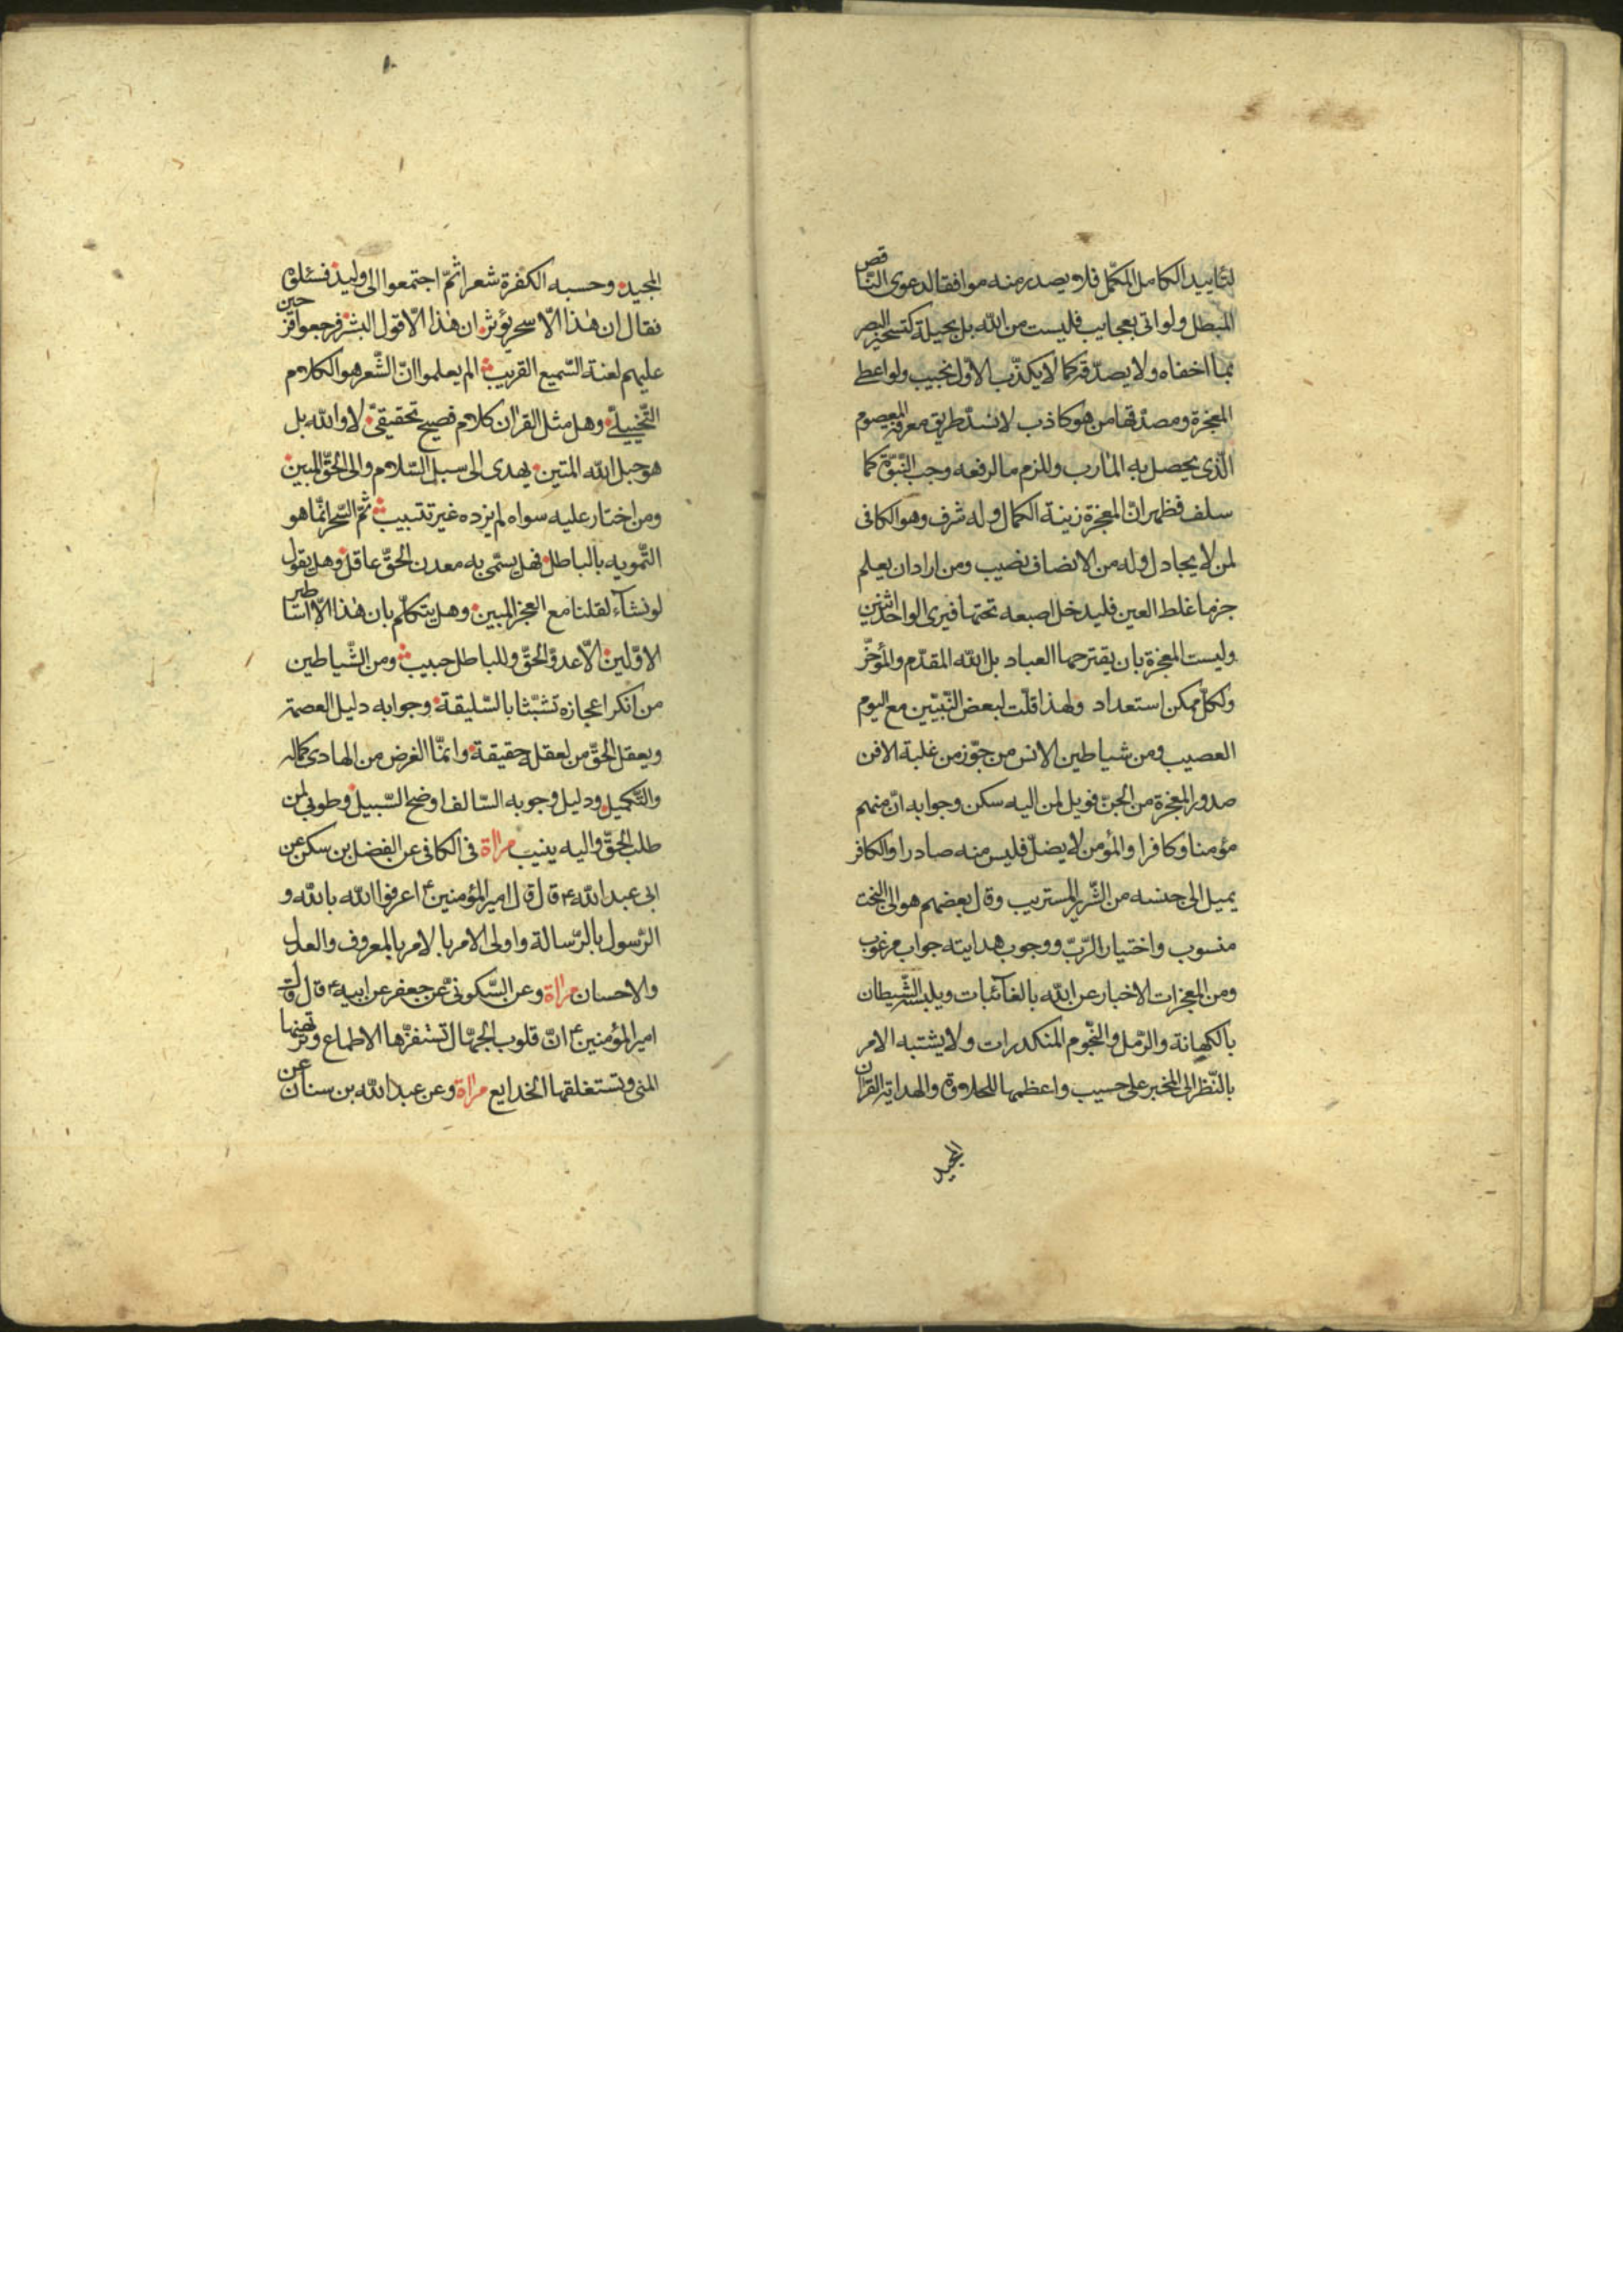 لتأييد الكامل المكمّل فلا يصدر منه موافقا لدعوى النّاقص
المبطل ولو اتى بعجايب فليست من اللّه بل بحيلة كتسخير البصر
بما اخفاه ولا يصدّقه كما لا يكذّب الاوّل نجيب ولو اعطى
المعجزة ومصدّقها من هو كاذب لانسدّ طريق معرفة المعصوم
الّذى يحصل به المارب وللزم ما لرفعه وجب النّبوّة كما
سلف فظهر انّ المعجزة زينة الكمال وله شرف وهو الكافى
لمن لا يجادل وله من الانصاف نصيب ومن اراد ان يعلم
جزما غلط العين فليدخل اصبعه تحتها فيرى الواحد اثنين
وليست المعجزة بان يقترحها العباد بل اللّه المقدّم والمؤخّر
ولكلّ ممكن استعداد ولهذا قلّت لبعض النّبيّين مع اليوم
العصيب ومن شياطين الانس من جوّز من غلبة الافن
صدور المعجزة من الجنّ فويل لمن اليه سكن وجوابه انّ منهم
مؤمنا وكافرا والمؤمن لا يضلّ فليس منه صادرا والكافر
يميل الى جنسه من الشّرير المستريب وقال بعضهم هو الى البخت
منسوب واختيار الرّبّ ووجوب هدايته جواب مرغوب
ومن المعجزات الاخبار عن اللّه بالغائبات ويلبسه الشّيطان
بالكهانة والرّمل والنّجوم المنكدرات ولا يشتبه الامر
بالنّظر الى المخبر على حسيب واعظمها للحلاوة والهداية القرآن
المجيد
المجيد وحسبه الكفرة شعرا ثمّ اجتمعوا الى وليد فسئلوه
فقال ان هذا الّا سحر يؤثر ان هذا الّا قول البشر فرجعوا فرحين
عليهم لعنة السّميع القريب الم يعلموا انّ الشّعر هو الكلام
التّخييلىّ وهل مثل القرآن كلام فصيح تحقيقىّ لا واللّه بل
هو حبل اللّه المتين يهدى الى سبل السّلام والى الحقّ المبين
ومن اختار عليه سواه لم يزده غير تتبيب ثمّ السّحر انّما هو
التّمويه بالباطل فهل يسمّى به معدن الحقّ عاقل وهل يقول
لو نشآء لقلنا مع العجز المبين وهل يتكلّم بان هذا الّا اساطير
الاوّلين الّا عدوّ الحقّ وللباطل حبيب ومن الشّياطين
من انكر اعجازه تشبّثا بالسّليقة وجوابه دليل العصمة
ويعقل الحقّ من لعقله حقيقة وانمّا الغرض من الهادى كماله
والتّكميل ودليل وجوبه السّالف اوضح السّبيل وطوبى لمن
طلب الحقّ واليه ينيب مرآة فى الكافى عن الفضل بن سكن عن
ابى عبد اللّه ع قال قال امير المؤمنين ع اعرفوا اللّه باللّه و
الرّسول بالرّسالة واولى الامر بالامر بالمعروف والعدل
والاحسان مرآة وعن السّكونىّ عن جعفر عن ابيه ع قال قال
امير المؤمنين ع انّ قلوب الجهّال تستفزّها الاطماع وترتهنها
المنى وتستغلقها الخدايع مرآة وعن عبد اللّه بن سنان عن